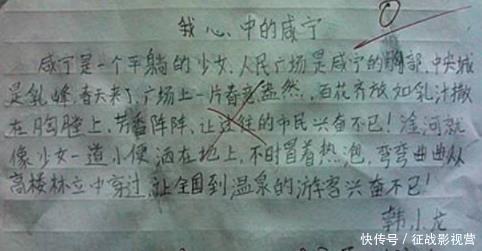 0
我心中的咸宁
咸宁是一个平躺的少女,人民广场是咸宁的胸部,中央城
是乳峰,春天来了,广场上一片春意盎然,百花齐放如乳汁撒
在胸膛上,芳香阵阵,让过往的市民兴奋不已!淦河就
像少女一道小便洒在地上,不时冒着热泡,弯弯曲曲从
高楼林立中穿过,让全国到温泉的游客兴奋不已!
韩小龙
快传号/征战影视营